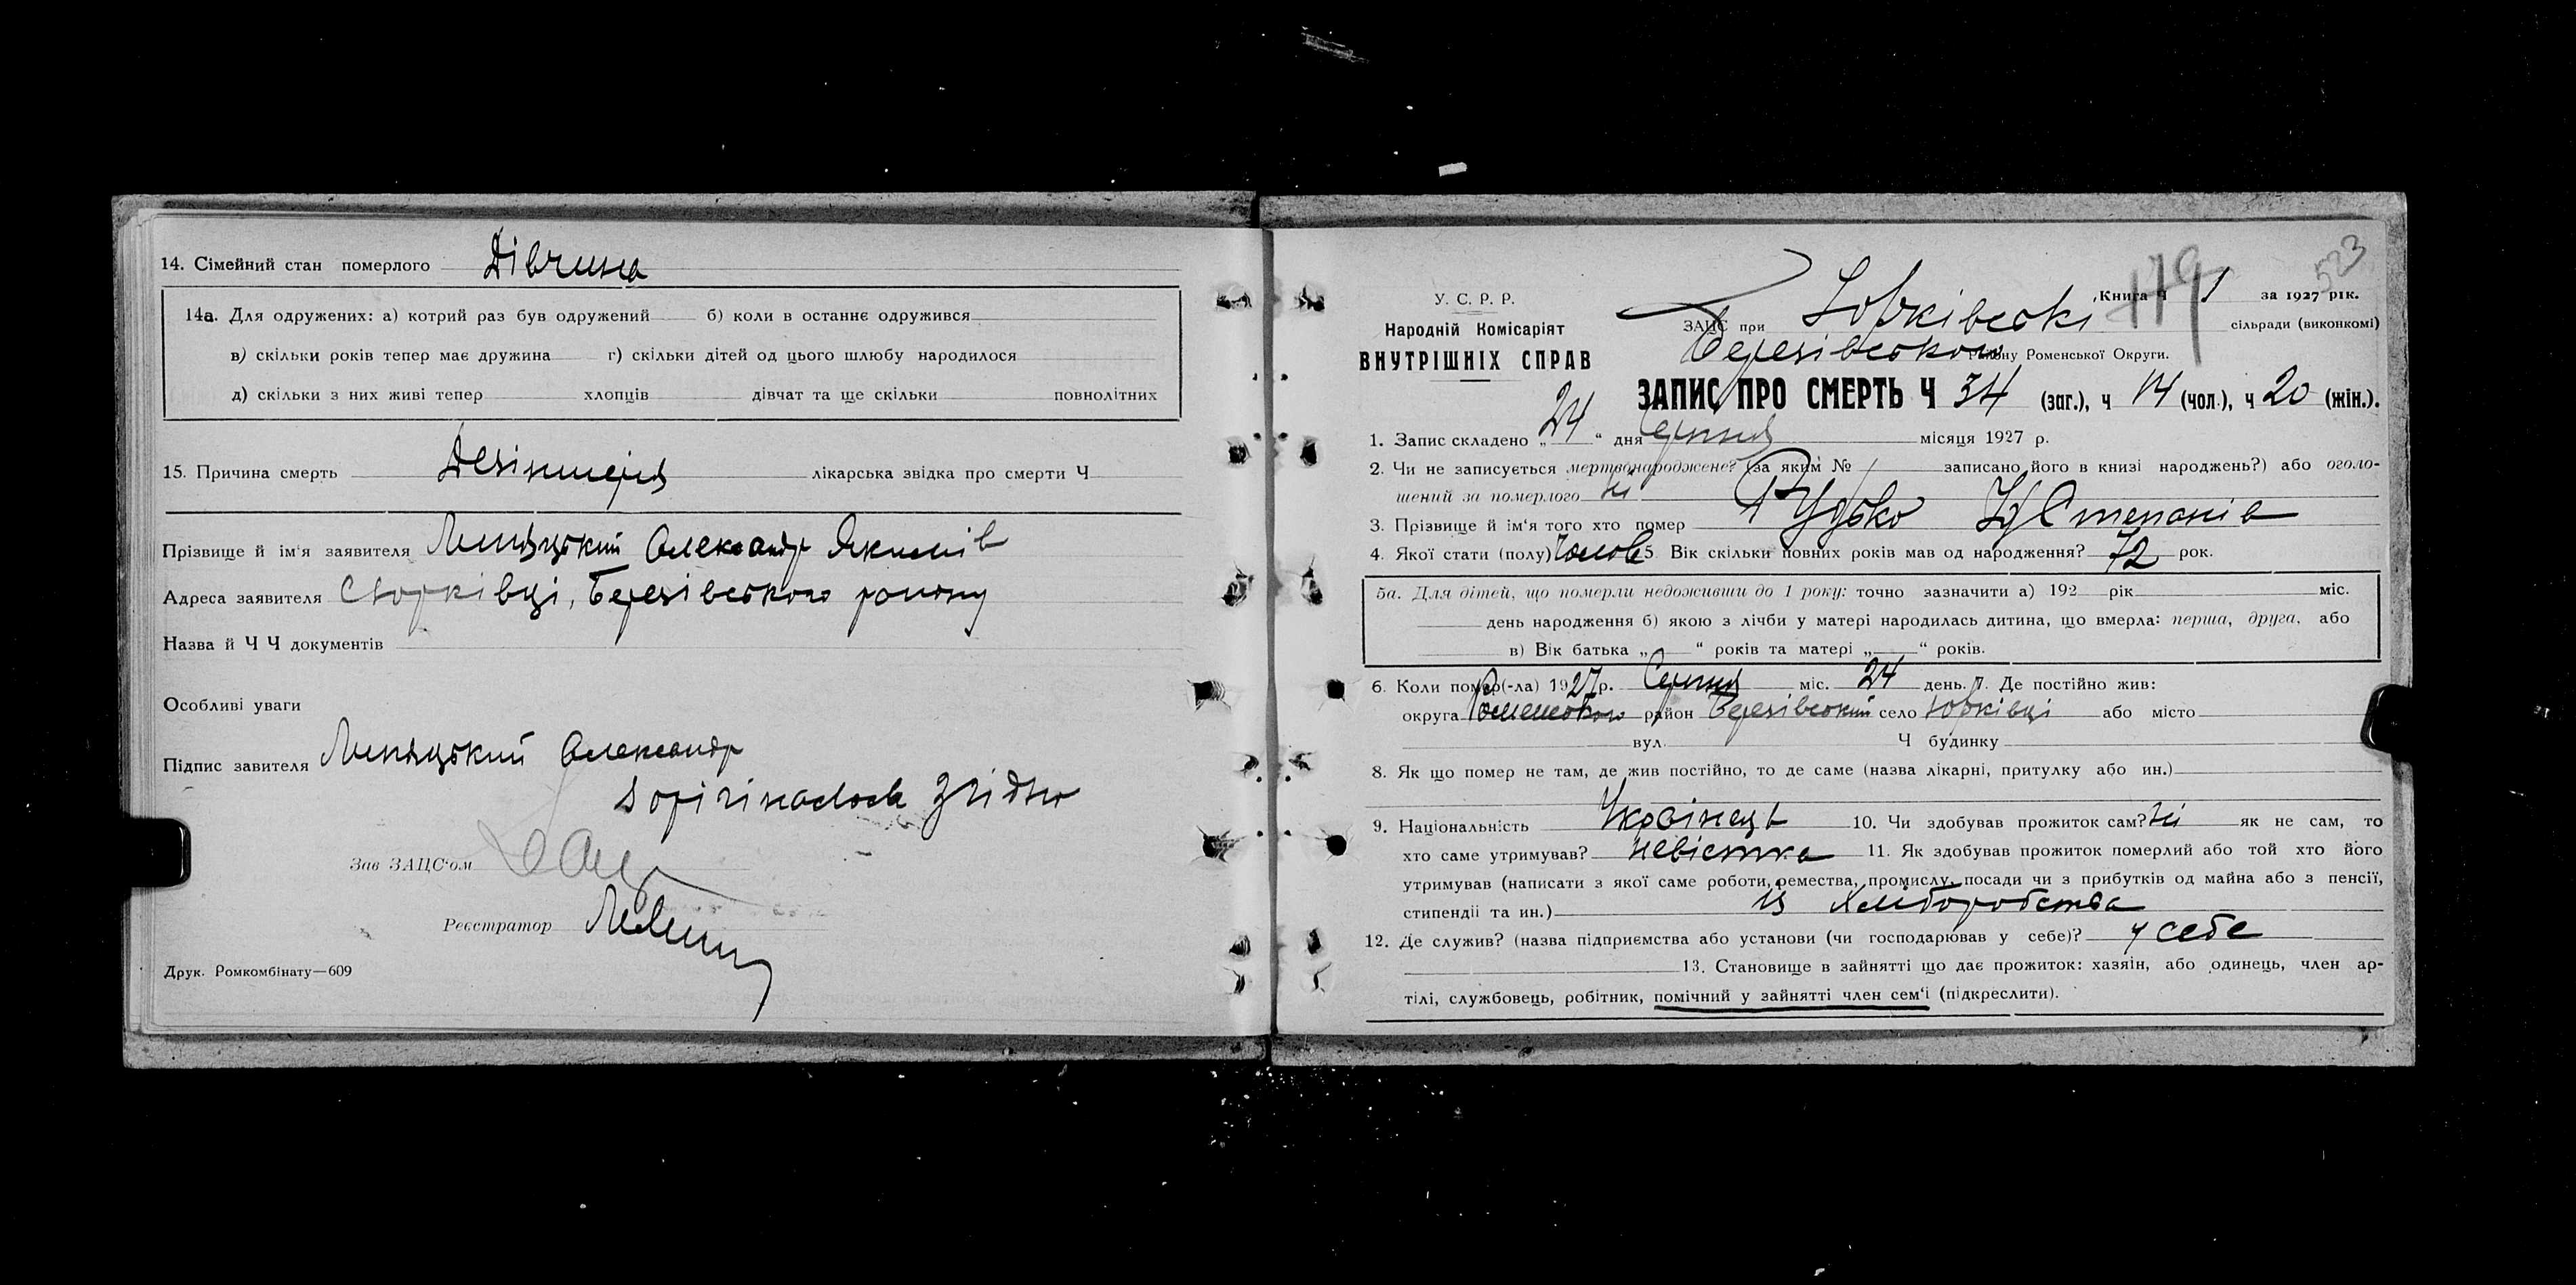 14. Сімейний стан померлого Дівчина
14а. Для одружених: а) котрий раз був одружений б) коли в останнє одружився
в) скільки років тепер має дружина г) скільки дітей од цього шлюбу народилося
д) скільки з них живі тепер хлопців дівчат та ще скільки повнолітних
15. Причина смерть Дезінтерія лікарська звідка про смерти Ч
Прізвище й ім'я заявителя Липяцький Олександр Якимів
Адреса заявителя Березівського району
Назва й Ч Ч документів
Особливі уваги
Підпис завителя Липяцький Олександр
З орігіналом згідно
Зав ЗАЦС'ом
Реєстратор
Друк. Ромкомбінату—609
523
179
У. С. Р. Р.
Народній Комісаріят
ВНУТРІШНІХ СПРАВ
Книга Ч 1 за 1927 рік.
ЗАЦС при сільради (виконкомі)
Березівського району Роменської Округи.
ЗАПИС ПРО СМЕРТЬ Ч 34 (заг.), ч 14 (чол.), ч 20 (жін.).
1. Запис складено „24“ дня Серпня місяця 1927 р.
2. Чи не записується мертвонароджене? (за яким № записано його в книзі народжень?) або оголо-
шений за померлого ні
3. Прізвище й ім'я того хто помер Рудько Степанів
4. Якої стати (полу) Чолов 5 Вік скільки повних років мав од народження? 72 рок.
5а. Для дітей, що померли недоживши до 1 року: точно зазначити а) 192 рік міс.
день народження б) якою з лічби у матері народилась дитина, що вмерла: перша, друга, або
в) Вік батька „ “ років та матері „ “ років.
6. Коли помер(-ла) 1927р. Серпня міс. 24 день. 7. Де постійно жив:
округа Роменського район Березівський село або місто
вул. Ч будинку
8. Як що помер не там, де жив постійно, то де саме (назва лікарні, притулку або ин.)
9. Національність Українець 10. Чи здобував прожиток сам? ні як не сам, то
хто саме утримував? невістка 11. Як здобував прожиток померлий або той хто його
утримував (написати з якої саме роботи, ремества, промислу, посади чи з прибутків од майна або з пенсії,
стипендії та ин.) із хліборобства
12. Де служив? (назва підприємства або установи (чи господарював у себе)? у себе
13. Становище в зайнятті що дає прожиток: хазяін, або одинець, член ар-
тілі, службовець, робітник, помічний у зайнятті член сем'і (підкреслити).